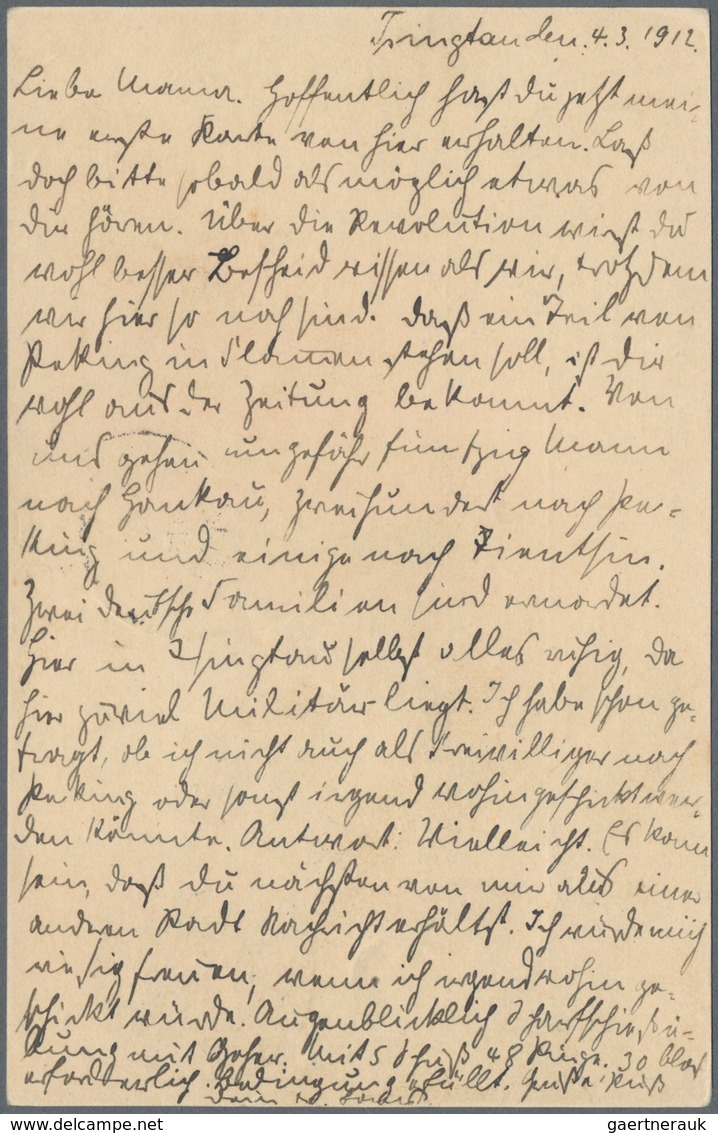 Tsingtau den. 4.3. 1912.
Liebe Mama. Hoffentlich hast du jetzt mei-
ne erste Karte von hier erhalten. Laß
doch bitte sobald als möglich etwas von
dir hören. Über die Revolution wirst du
wohl besser Bescheid wissen als wir, trotzdem
wir hier so nah sind. Daß ein Teil von
Peking in Flammen stehen soll, ist dir
wohl aus der Zeitung bekannt. Von
uns gehen ungefähr fünfzig Mann
nach Hankau, zweihundert nach Pe-
king und einige nach Tientsin.
Zwei deutsche Familien sind ermordet.
Hier in Tsingtau selbst alles ruhig, da
hier zuviel Militär liegt. Ich habe schon ge-
fragt, ob ich nicht auch als Freiwilliger nach
Peking oder sonst irgend wohin geschickt wer-
den könnte. Antwort: Vielleicht. Es kann
sein, daß du nächstens von mir aus einer
anderen Stadt Nachricht erhältst. Ich würde mich
riesig freuen, wenn ich irgendwohin ge-
schickt würde. Augenblicklich Scharfschießü-
bung mit Gewehr. Mit 5 Schuß 48 Ringe. 30 bloß
erforderlich. Bedingung erfüllt. Gruß & Kuß
Dein
gaertnerauk